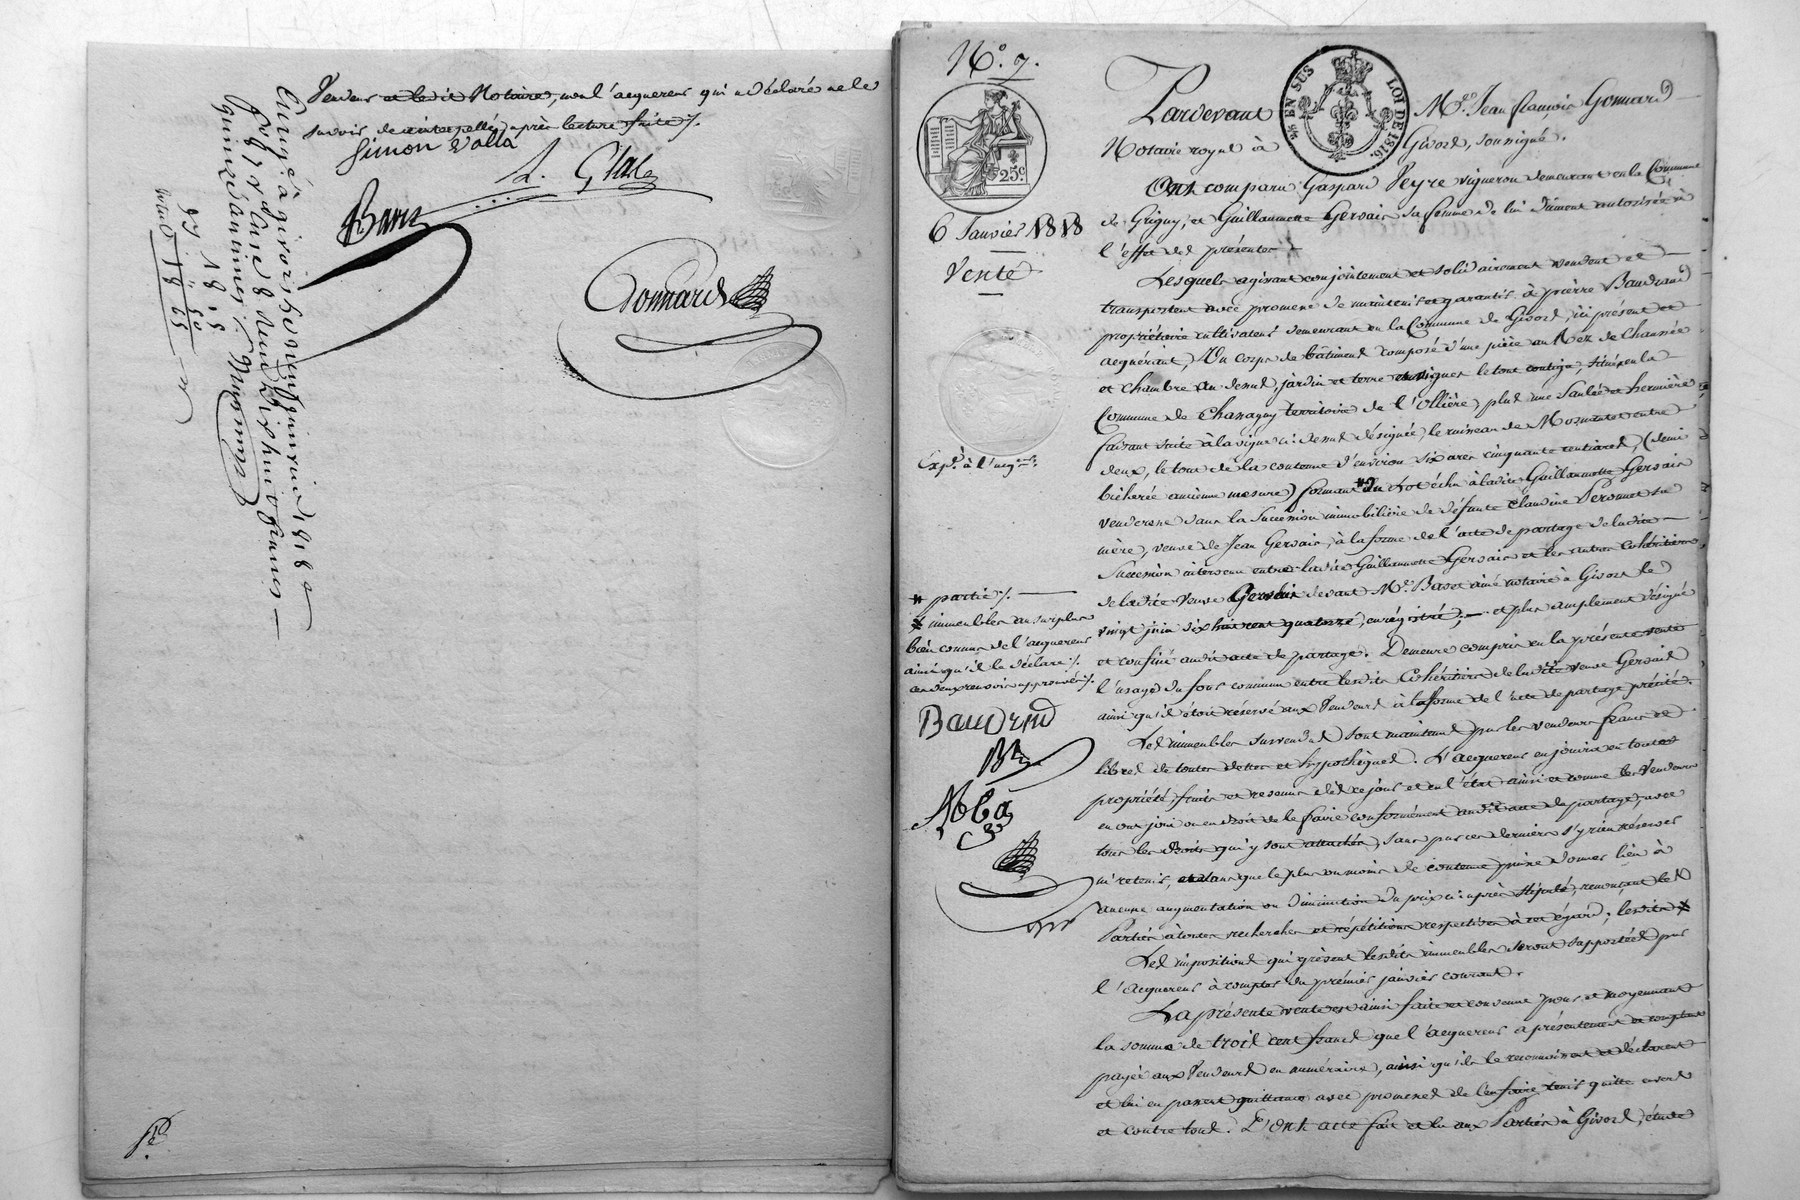 Vendeurs et ledit Notaire, non l'acquereur qui a déclaré ne le
savoir de ce interpellé, après lecture faite ./.
Simon Valla
Baret
Gonnard
Enregé à givors le vingt janvier 1818
fol 87
quinze centimes
N° 7.
EN SUS
LOI DE 1816
25c
6 Janvier 1818
Vente
Expé à l'acqr
* partie ./.
immeubles au surplus
bien connus de l'acquereur
ainsi qu'il le déclare ./.
ces deux renvois approuvés ./.
Pardevant Me Jean françois Gonnard
Notaire royal à Givors, soussigné.
Ont comparu Gaspard Peyre vigneron demeurant en la Commune
de Grigny, et Guillaumette Gervais sa femme de lui dûment autorisée à
l'effet des présentes
Lesquels agissant conjointement et solidairement vendent et
transportent avec promesse de maintenir et garantir à pierre Baudrand
propriétaire cultivateur demeurant en la Commune de Givors, ici présent et
acquérant, Un corps de bâtiment composé d'une pièce au Rez de chaussée
et chambre au dessus, jardin et terre et vignes le tout contigu, situés en la
Commune de Chassagny territoire de l'Ollière, plus une Saulée et hermière
faisant suite à la vigne ci-dessus désignée, le ruisseau de Mornantet entre
deux, le tout de la contenue d'environ six ares cinquante centiares, (demi
bicherée ancienne mesure) formant * du Lot échu à ladite Guillaumette Gervais
venderesse dans la Succession immobilière de défunte Claudine Peronnet sa
mère, veuve de Jean Gervais, à la forme de l'acte de partage de ladite
Succession intervenu entre ladite Guillaumette Gervais et les autres cohéritiers
de ladite veuve Gervais devant Me Baret aîné notaire à Givors le
vingt juin dix huit cent quatorze, enrégistré, et plus amplement désigné
et confiné audit acte de partage. Demeure compris en la présente vente
l'usage du four commun entre lesdits Cohéritiers de ladite veuve Gervais
ainsi qu'il étoit réservé aux Vendeurs à la forme de l'acte de partage précité.
Les immeubles susvendus sont maintenus par les vendeurs francs et
libres de toutes dettes et hypothèques. L'acquereur en jouira en toute
propriété, fruits et revenus dès ce jour et en l'état ainsi et comme les Vendeurs
en ont joui ou eu droit de le faire conformément audit acte de partage, avec
tous les droits qui y sont attachés, sans par ces derniers s'y rien réserver
ni retenir, et sans que le plus ou moins de contenue puisse donner lieu à
aucune augmentation ou diminution du prix ci-après stipulé, renonçant les
Parties à toutes recherches et répétitions respectives à cet égard ; lesdits
Les impositions qui grèvent lesdits immeubles seront supportées par
l'acquereur à compter du premier janvier courant.
La présente vente est ainsi faite et convenue pour et moyennant
la somme de trois cent francs que l'acquereur a présentement et comptant
payée aux Vendeurs en numéraire, ainsi qu'ils le reconnoissent et déclarent
et lui en passent quittance avec promesse de l'en faire tenir quitte envers
et contre tous. Dont acte fait et lu aux Parties à Givors, étude